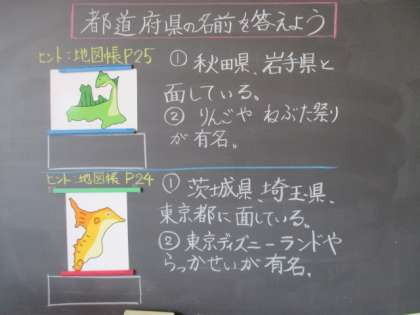 都道府県の名前を答えよう
ヒント:地図帳P25
① 秋田県、岩手県と
面している、
② りんごや ねぶた祭り
が 有名。
ヒント 地図帳 P24
① 茨城県、埼玉県、
東京都に面している。
② 東京ディズニーランドや
らっかせいが 有名。